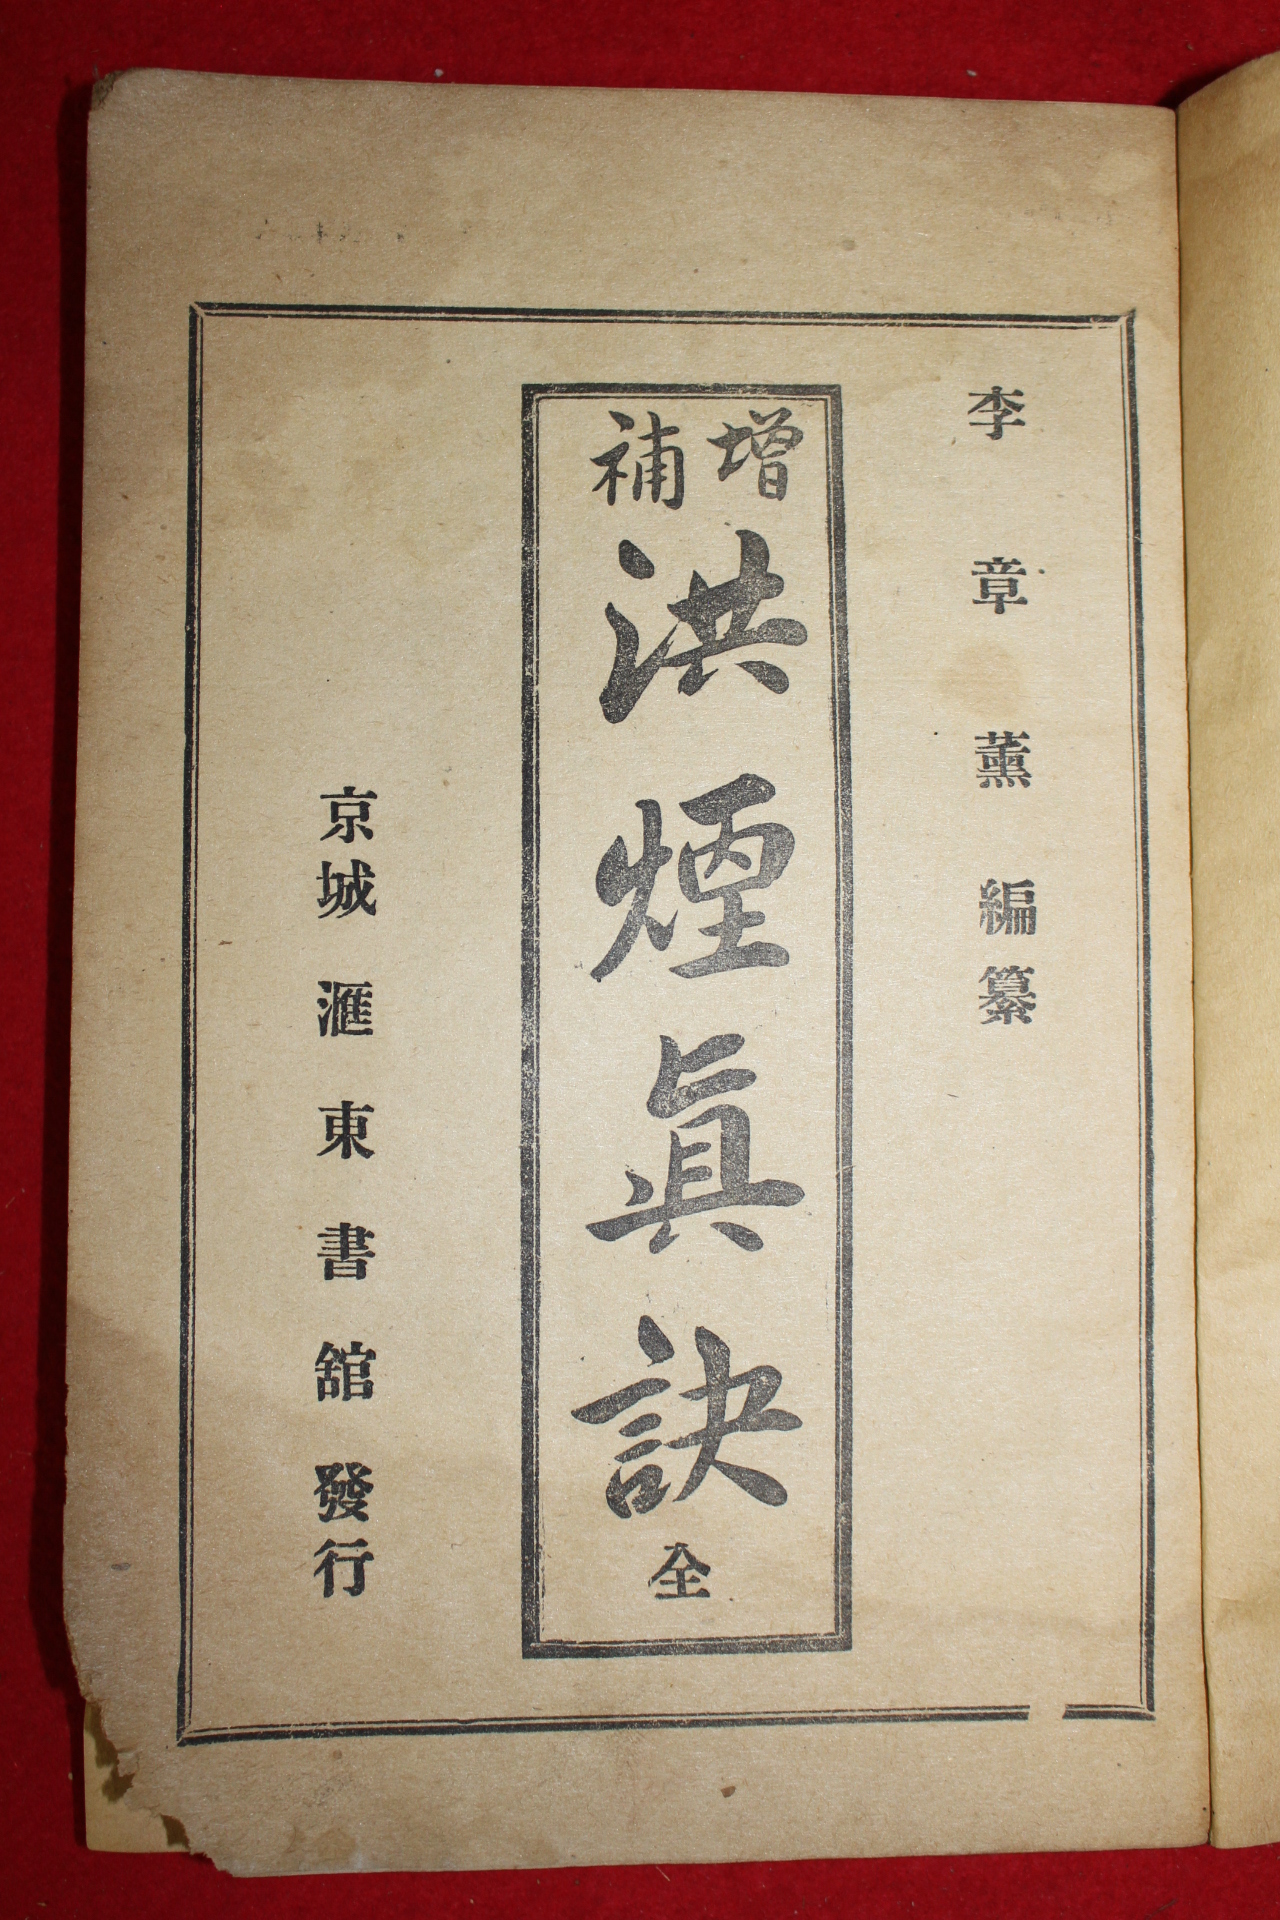 李章薰編纂
增補
洪煙眞訣全
京城滙東書舘發行